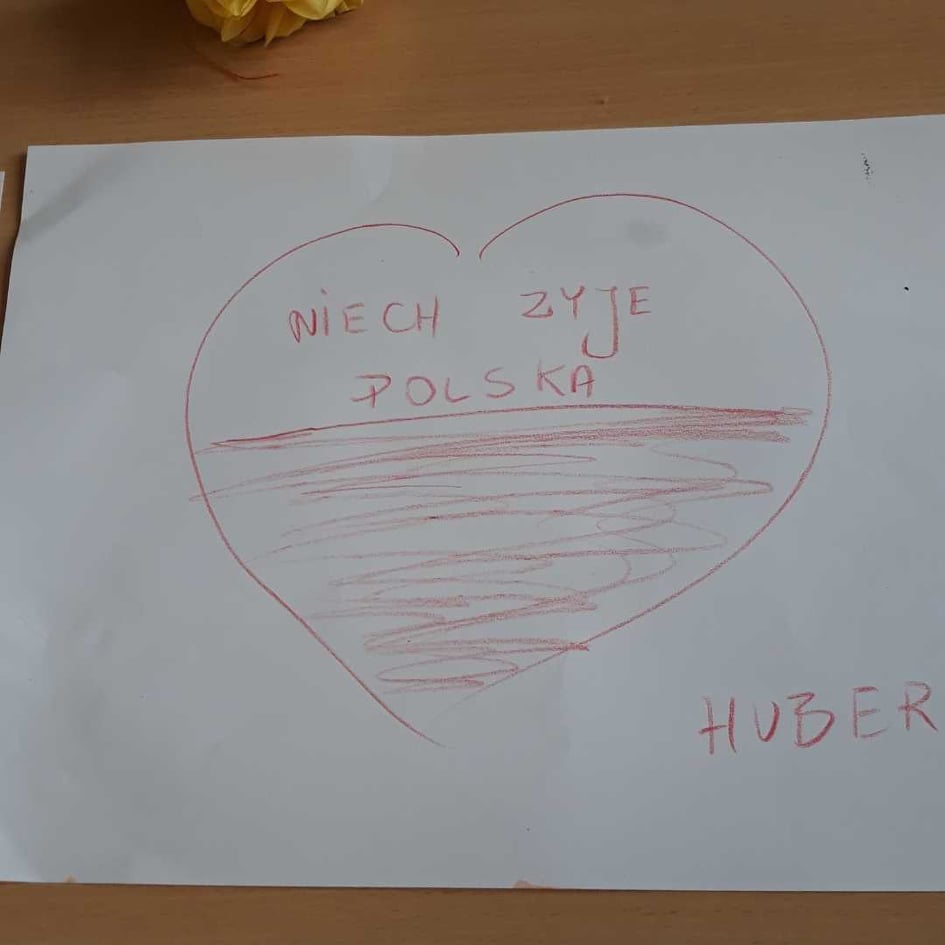 NIECH ZYJE
POLSKA
HUBER